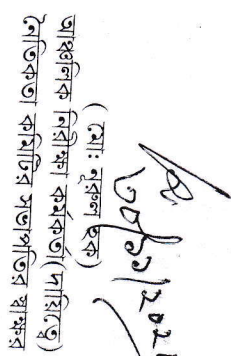 (মোঃ নুরুল হক)
আঞ্চলিক নিরিক্ষা কর্মকর্তা(দায়িত্বে)
নৈতিকতা কমিটির সভাপতির স্বাক্ষর